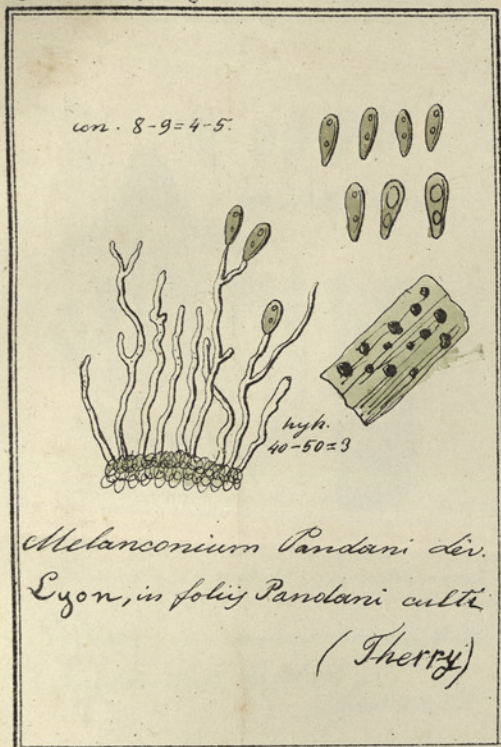 con. 8-9=4-5.
hyh.
40-50=3
Melanconium Pandani Lév.
Lyon, in foliis Pandani culti
(Therry)